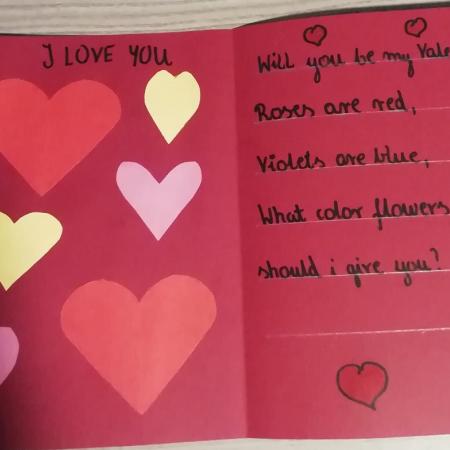 I LOVE YOU
Will you be my
Roses are red,
Violets are blue,
What color flowers
should i give you?